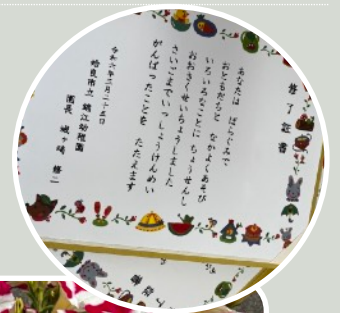 修了証書
あなたは ばらぐみで
おともだちと なかよくあそび
いろいろなことに ちょうせんし
おおきくせいちょうしました
さいごまでいっしょうけんめい
がんばったことを たたえます
令和六年三月二十五日
姶良市立 錦江幼稚園
園長